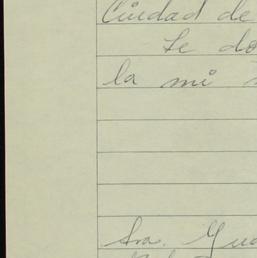 Ciudad de
Le do
la mi
Sra. Gua